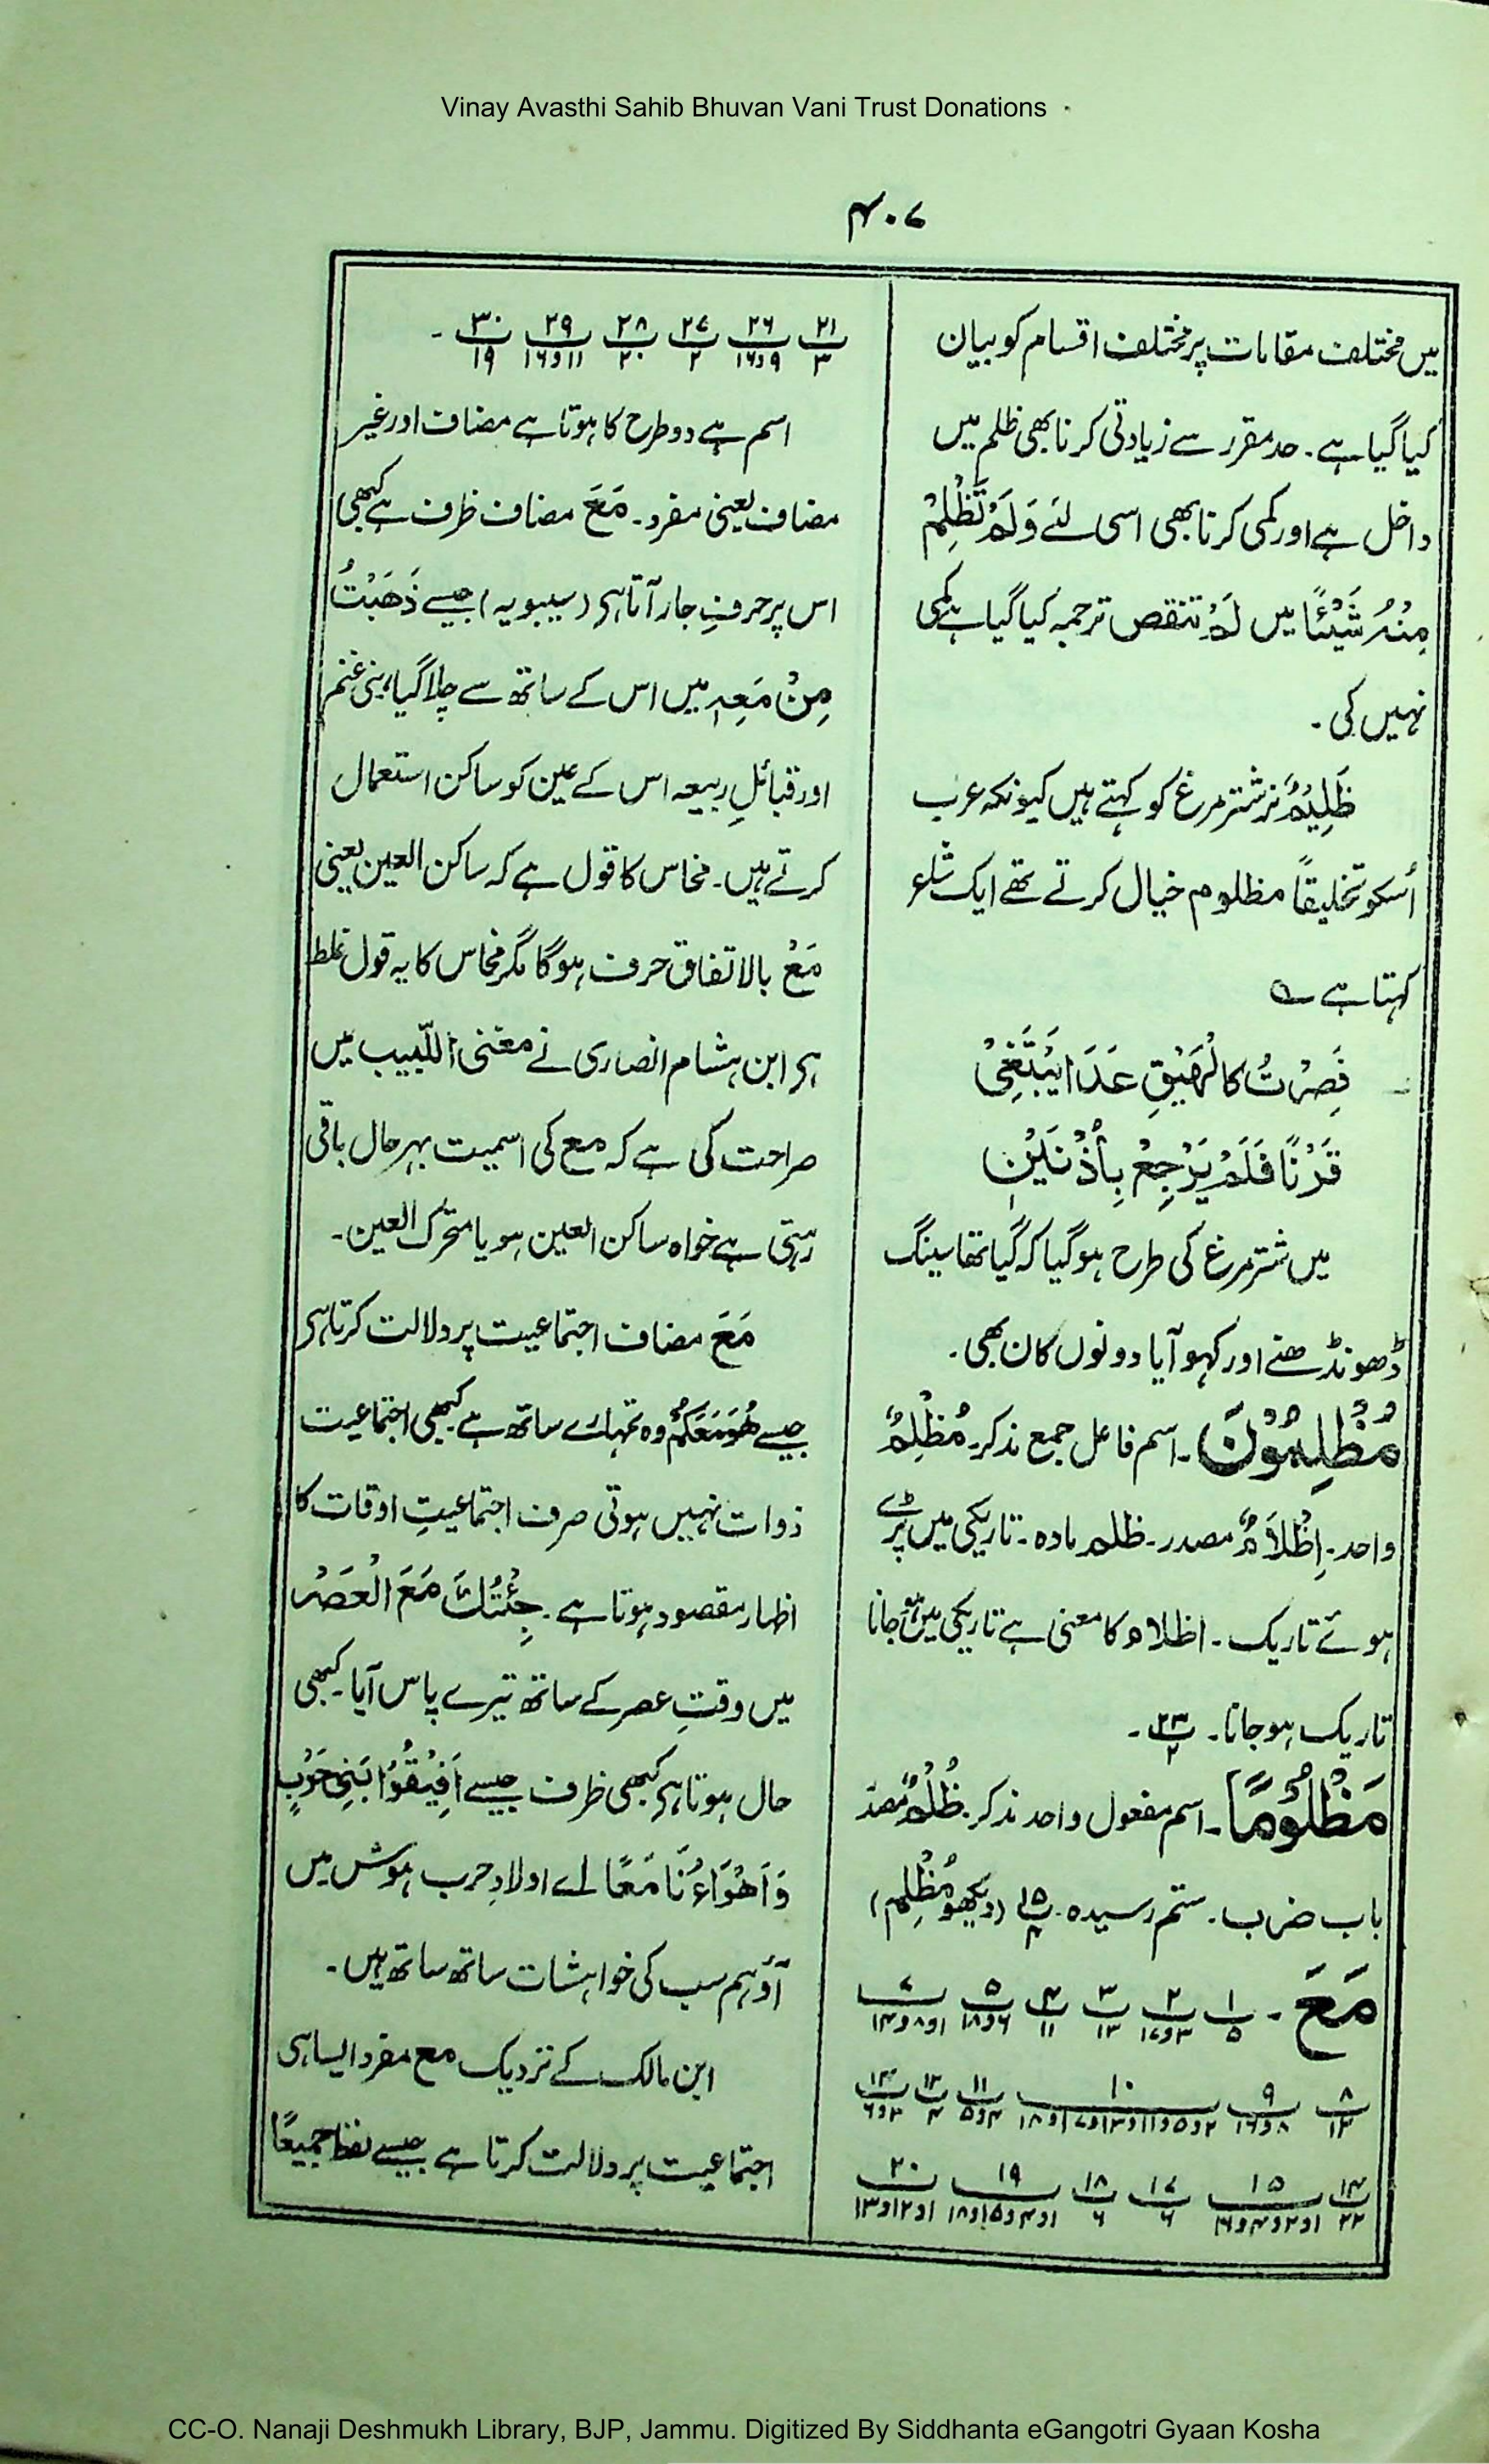 Vinay Avasthi Sahib Bhuvan Vani Trust Donations
۴۰۷
میں مختلف مقامات پر مختلف اقسام کو بیان
کیا گیا ہے۔ حد مقرر سے زیادتی کرنا بھی ظلم میں
داخل ہے اور کمی کرنا بھی اسی لئے وَلَمْ تَظْلِمْ
مِنْهُ شَيْئًا میں لَمْ تنقص ترجمہ کیا گیا ہے کمی
نہیں کی۔
ظَلِیْمٌ نر شتر مرغ کو کہتے ہیں کیونکہ عرب
اُسکو تخلیقاً مظلوم خیال کرتے تھے ایک شاعر
کہتا ہے ؎
فَصِرْتُ كَالْهَيْقِ عَدَا يَبْتَغِيْ
قَرْنًا فَلَمْ يَرْجِعْ بِأُذْنَيْنِ
میں شتر مرغ کی طرح ہوگیا کہ گیا تھا سینگ
ڈھونڈھنے اور کھو آیا دونوں کان بھی۔
مُظْلِمُوْنَ۔ اسم فاعل جمع مذکر۔ مُظْلِمٌ
واحد۔ اِظْلَامٌ مصدر۔ ظلم مادہ۔ تاریکی میں پڑے
ہوئے تاریک۔ اظلام کا معنی ہے تاریکی میں ہو جانا
تاریک ہو جانا۔ ۲۳/۲۔
مَظْلُوْمًا۔ اسم مفعول واحد مذکر۔ ظُلْمٌ مصدر
باب ضرب۔ ستم رسیدہ۔ ۱۵/۴ (دیکھو مُظْلِم)
مَعَ۔ ۱/۵ ۲/۳و۱۷ ۳/۱۳ ۴/۱۱ ۵/۶و۱۸ ۷/۱و۸و۱۴
۸/۱۲ ۹/۸و۱۶ ۱۰/۲و۵و۱۱و۱۳و۱۷و۱۸ ۱۱/۴و۵ ۱۲/۴ ۱۳/۲و۶
۱۴/۲۲ ۱۵/۱و۲و۴و۱۶ ۱۷/۶ ۱۸/۶ ۱۹/۱و۴و۱۵و۱۸ ۲۰/۱و۱۲و۱۳
۲۱/۳ ۲۶/۹و۱۶ ۲۷/۲ ۲۸/۲۰ ۲۹/۱۱و۱۶ ۳۰/۱۹ ۔
اسم ہے دو طرح کا ہوتا ہے مضاف اور غیر
مضاف یعنی مفرد۔ مَعَ مضاف ظرف ہے کبھی
اس پر حرفِ جار آتا ہے (سیبویہ) جیسے ذَهَبْتُ
مِنْ مَعِهٖ میں اس کے ساتھ سے چلا گیا، بنی غنم
اور قبائلِ ربیعہ اس کے عین کو ساکن استعمال
کرتے ہیں۔ نحاس کا قول ہے کہ ساکن العین یعنی
مَعْ بالاتفاق حرف ہوگا مگر نحاس کا یہ قول غلط
ہے ابن ہشام انصاری نے مغنی اللّبیب میں
صراحت کی ہے کہ مع کی اسمیت بہر حال باقی
رہتی ہے خواہ ساکن العین ہو یا متحرک العین۔
مَعَ مضاف اجتماعیت پر دلالت کرتا ہے
جیسے هُوَ مَعَكُمْ وہ تمہارے ساتھ ہے کبھی اجتماعیت
ذوات نہیں ہوتی صرف اجتماعیتِ اوقات کا
اظہار مقصود ہوتا ہے۔ جِئْتُكَ مَعَ الْعَصْرِ
میں وقتِ عصر کے ساتھ تیرے پاس آیا۔ کبھی
حال ہوتا ہے کبھی ظرف جیسے اَفِيْقُوْا بَنِيْ حَرْبٍ
وَاَهْوَاءُنَا مَعًا اے اولادِ حرب ہوش میں
آؤ ہم سب کی خواہشات ساتھ ساتھ ہیں۔
ابن مالک کے نزدیک مع مفرد ایسا ہی
اجتماعیت پر دلالت کرتا ہے جیسے لفظ جمیعًا
CC-O. Nanaji Deshmukh Library, BJP, Jammu. Digitized By Siddhanta eGangotri Gyaan Kosha